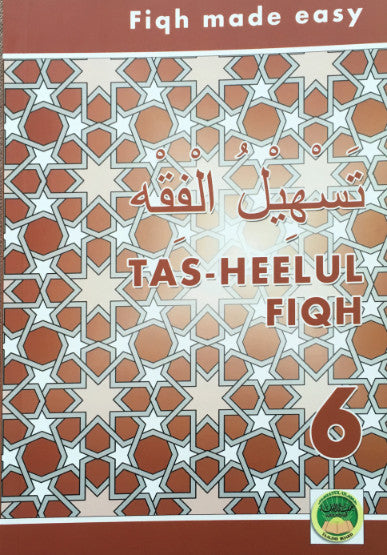 Fiqh made easy
تَسْهِيْلُ الْفِقْه
TAS-HEELUL
FIQH
6